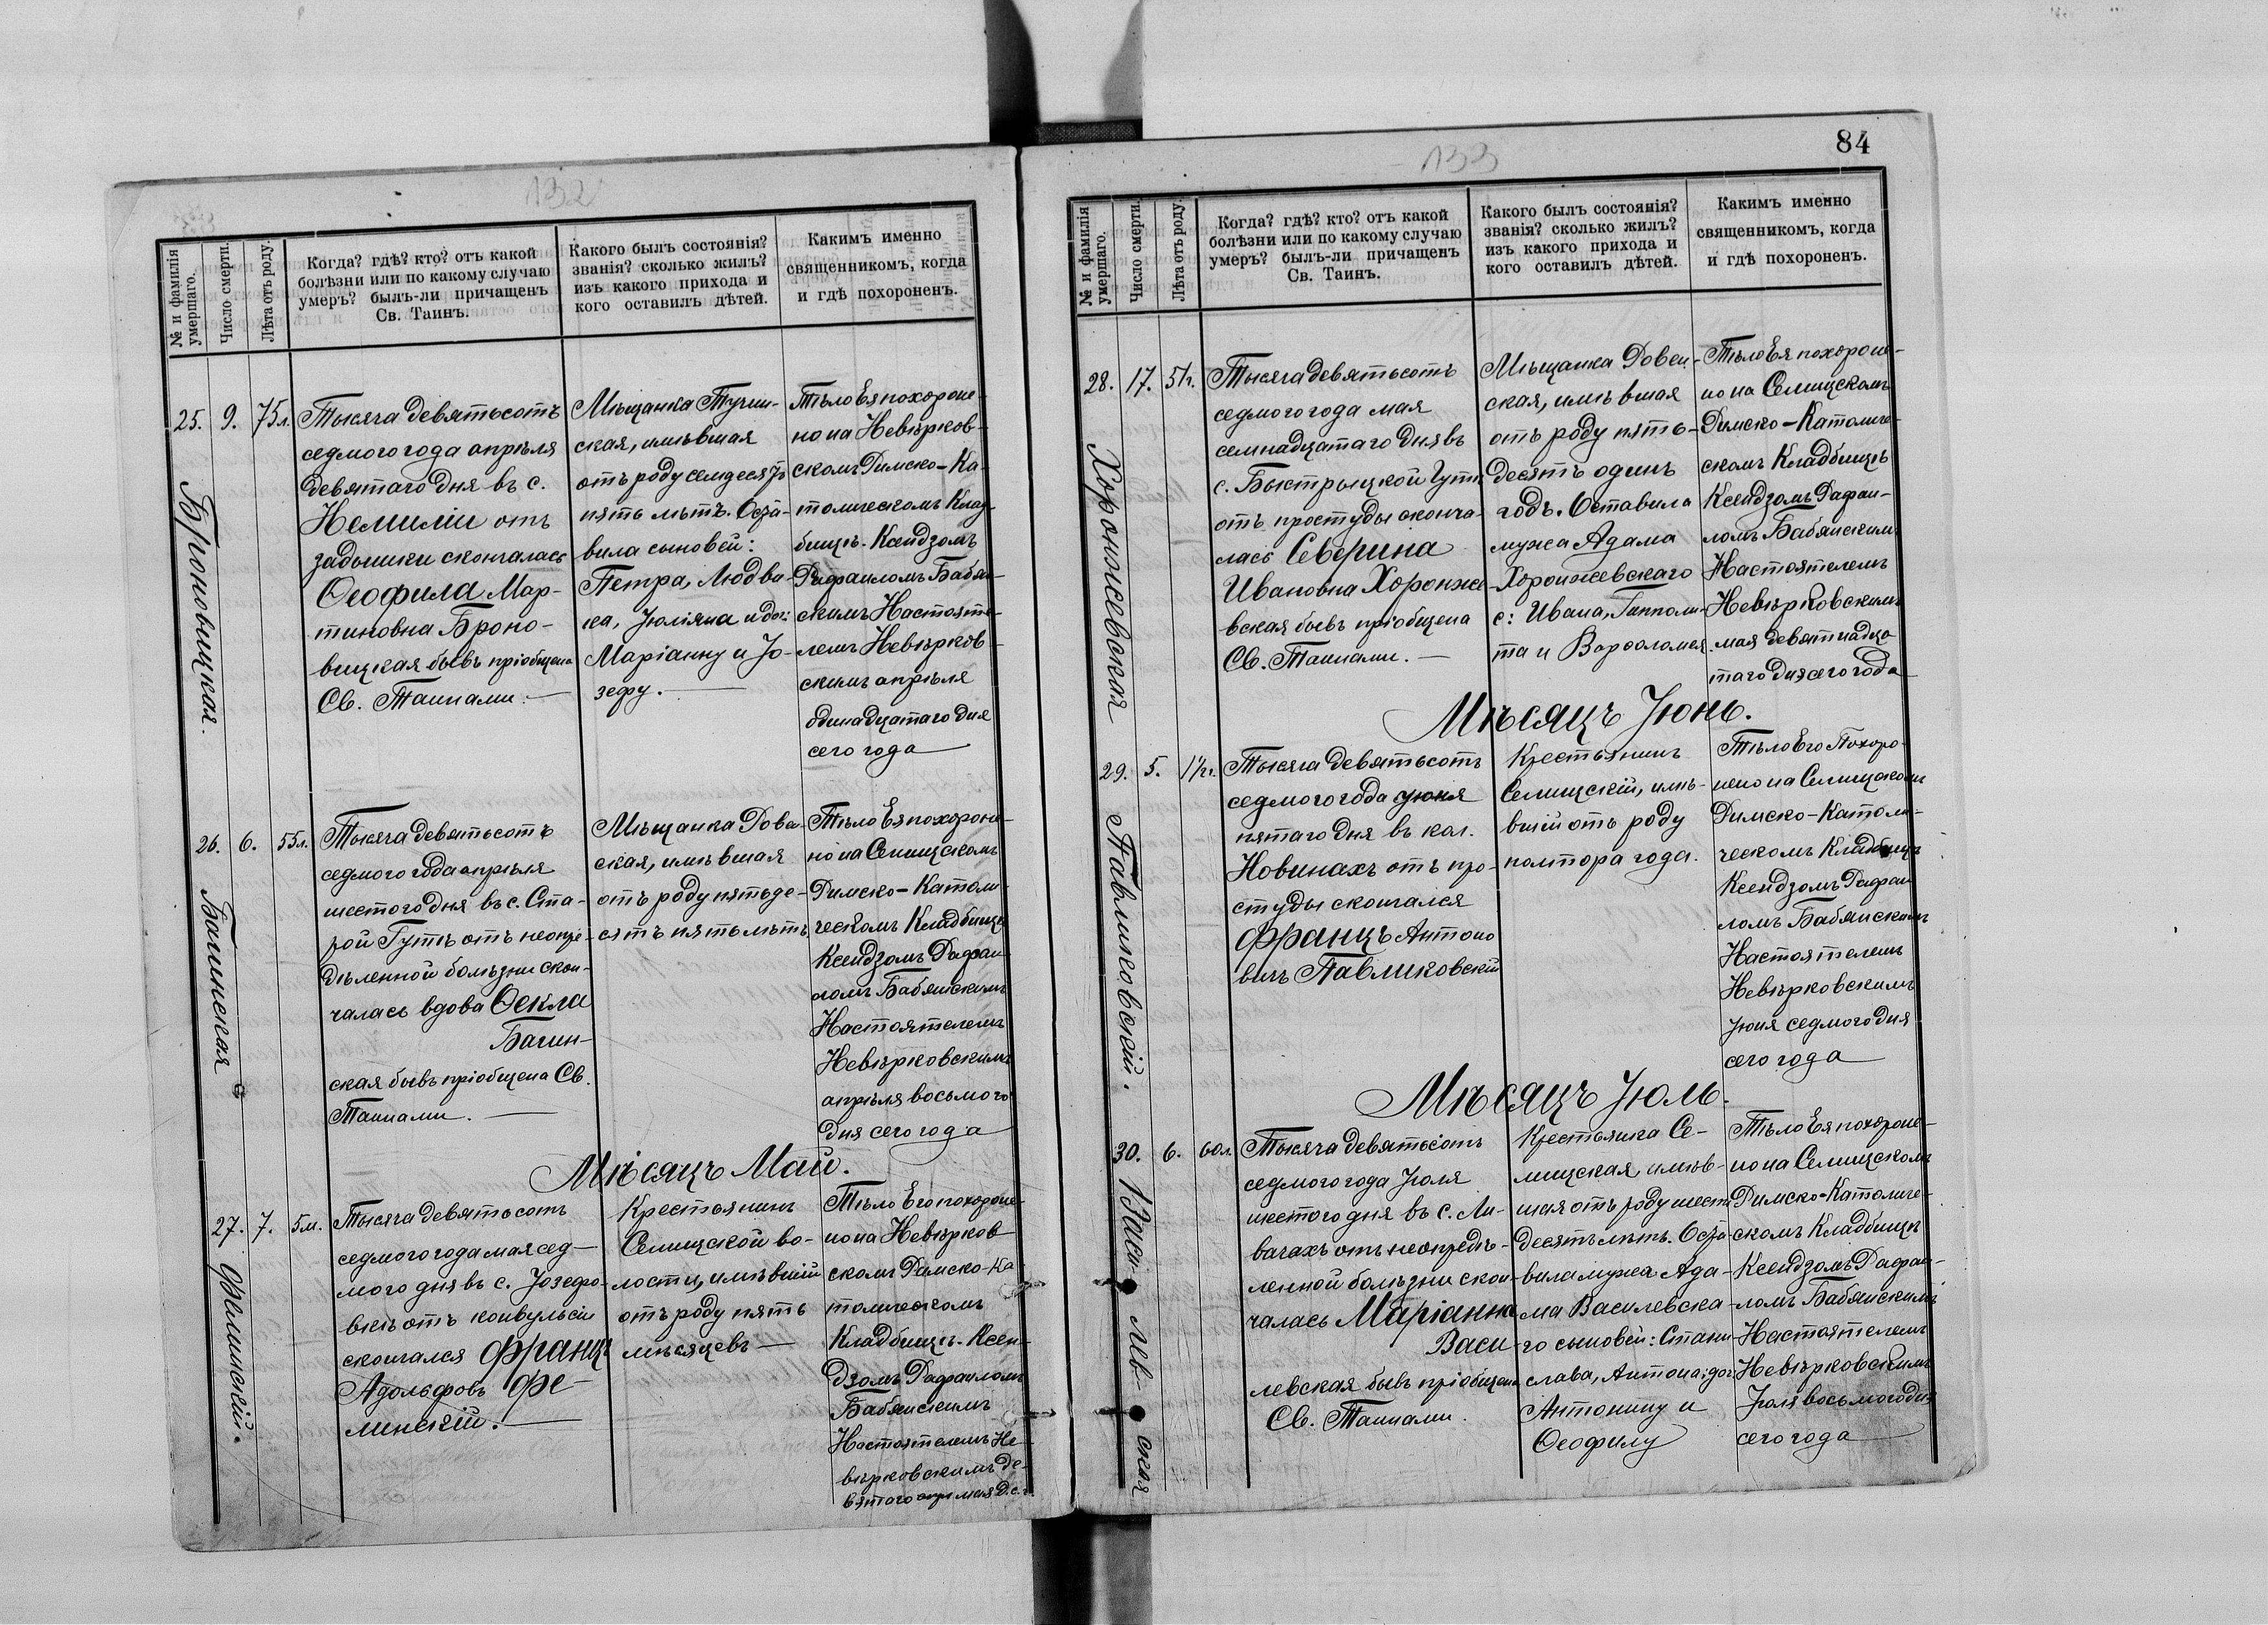 132
№ и фамилія умершаго.
Число смерти.
Лѣта отъ роду.
Когда? гдѣ? кто? отъ какой
болѣзни или по какому случаю
умеръ? былъ-ли причащенъ
Св. Таинъ.
Какого былъ состоянія?
званія? сколько жилъ?
изъ какого прихода и
кого оставилъ дѣтей.
Какимъ именно
священникомъ, когда
и гдѣ похороненъ.
25.
Броновицкая.
9.
75л.
Тысяча девятьсотъ
седмого года апрѣля
девятаго дня въ с.
Немиліи отъ
задышки скончалась
Ѳеофила Мар-
тиновна Броно-
вицкая бывъ пріобщена
Св. Таинами.
Мѣщанка Тучин-
ская, имѣвшая
отъ роду семдесятъ
пять лѣтъ. Оста-
вила сыновей:
Петра, Людви-
ка, Юліяна и доч:
Маріанну и Јо-
зефу.
Тѣло Ея похороне-
но на Невѣрков-
скомъ Римско-Ка-
толическомъ Клад-
бищѣ. Ксендзомъ
Рафаиломъ Бабян-
скимъ Настояте-
лемъ Невѣрков-
скимъ апрѣля
одинадцатаго дня
сего года
26.
Багинская
6.
55л.
Тысяча девятьсотъ
седмого года апрѣля
шестого дня въ с. Ста-
рой Гутѣ отъ неопре-
дѣленной болѣзни скон-
чалась вдова Ѳекла
Багин-
ская бывъ пріобщена Св.
Таинами.
Мѣщанка Рове-
ская, имѣвшая
отъ роду пятьде-
сятъ пять лѣтъ.
Тѣло Ея похороне-
но на Селищскомъ
Римско-Католи-
ческомъ Кладбищѣ
Ксендзомъ Рафаи-
ломъ Бабянскимъ
Настоятелемъ
Невѣрковскимъ
апрѣля восьмого
дня сего года
Мѣсяцъ Май.
27.
Фелинскій.
7.
5м.
Тысяча девятьсотъ
седмого года мая сед-
мого дня въ с. Јозефо-
вкѣ отъ конвульсіи
скончался Францъ
Адольфовъ Фе-
линскій.
Крестьянинъ
Селищской во-
лости, имѣвшій
отъ роду пять
мѣсяцевъ
Тѣло Его похороне-
но на Невѣрков-
скомъ Римско-Ка
толическомъ
Кладбищѣ. Ксен-
дзомъ Рафаиломъ
Бабянскимъ
Настоятелемъ Не-
вѣрковскимъ де-
вятаго мая д.с.г.
133
84
№ и фамилія умершаго.
Число смерти.
Лѣта отъ роду.
Когда? гдѣ? кто? отъ какой
болѣзни или по какому случаю
умеръ? былъ-ли причащенъ
Св. Таинъ.
Какого былъ состоянія?
званія? сколько жилъ?
изъ какого прихода и
кого оставилъ дѣтей.
Какимъ именно
священникомъ, когда
и гдѣ похороненъ.
28.
Хоронжевская
17.
51г.
Тысяча девятьсотъ
седмого года мая
семнадцатаго дня въ
с. Быстрыцкой Гутѣ
отъ простуды сконча-
лась Северина
Ивановна Хоронже-
вская бывъ пріобщена
Св. Таинами.
Мѣщанка Ровен-
ская, имѣвшая
отъ роду пять-
десятъ одинъ
годъ. Оставила
мужа Адама
Хоронжевскаго
с: Ивана, Гипполи-
та и Варѳоломея.
Тѣло Ея похороне-
но на Селищскомъ
Римско-Католиче-
скомъ Кладбищѣ
Ксендзомъ Рафаи-
ломъ Бабянскимъ
Настоятелемъ
Невѣрковскимъ
мая девятнадца
таго дня сего года
Мѣсяцъ Јюнь.
29.
Павликовскій.
5.
1½г.
Тысяча девятьсотъ
седмого года јюня
пятаго дня въ кол.
Новинахъ отъ про-
студы скончался
Францъ Антоно
вичъ Павликовскій
Крестьянинъ
Селищскій, имѣ-
вшій отъ роду
полтора года.
Тѣло Его Похоро-
нено на Селищскомъ
Римско-Католи-
ческомъ Кладбищѣ
Ксендзомъ Рафаи
ломъ Бабянскимъ
Настоятелемъ
Невѣрковскимъ
јюня седмого дня
сего года
Мѣсяцъ Јюль.
30.
Васи-лев-ская
6.
60л.
Тысяча девятьсотъ
седмого года Јюля
шестого дня въ с. Ли-
вачахъ отъ неопредѣ-
ленной болѣзни скон-
чалась Маріанна
Васи-
левская бывъ пріобщена
Св. Таинами.
Крестьянка Се-
лищская, имѣв-
шая отъ роду шесть
десятъ лѣтъ. Оста-
вила мужа Ада-
ма Василевска-
го сыновей: Стани-
слава, Антона: доч:
Антонину и
Ѳеофилу
Тѣло Ея похороне-
но на Селищскомъ
Римско-Католиче-
скомъ Кладбищѣ
Ксендзомъ Рафаи-
ломъ Бабянскимъ
Настоятелемъ
Невѣрковскимъ
Јюля восьмого дня
сего года